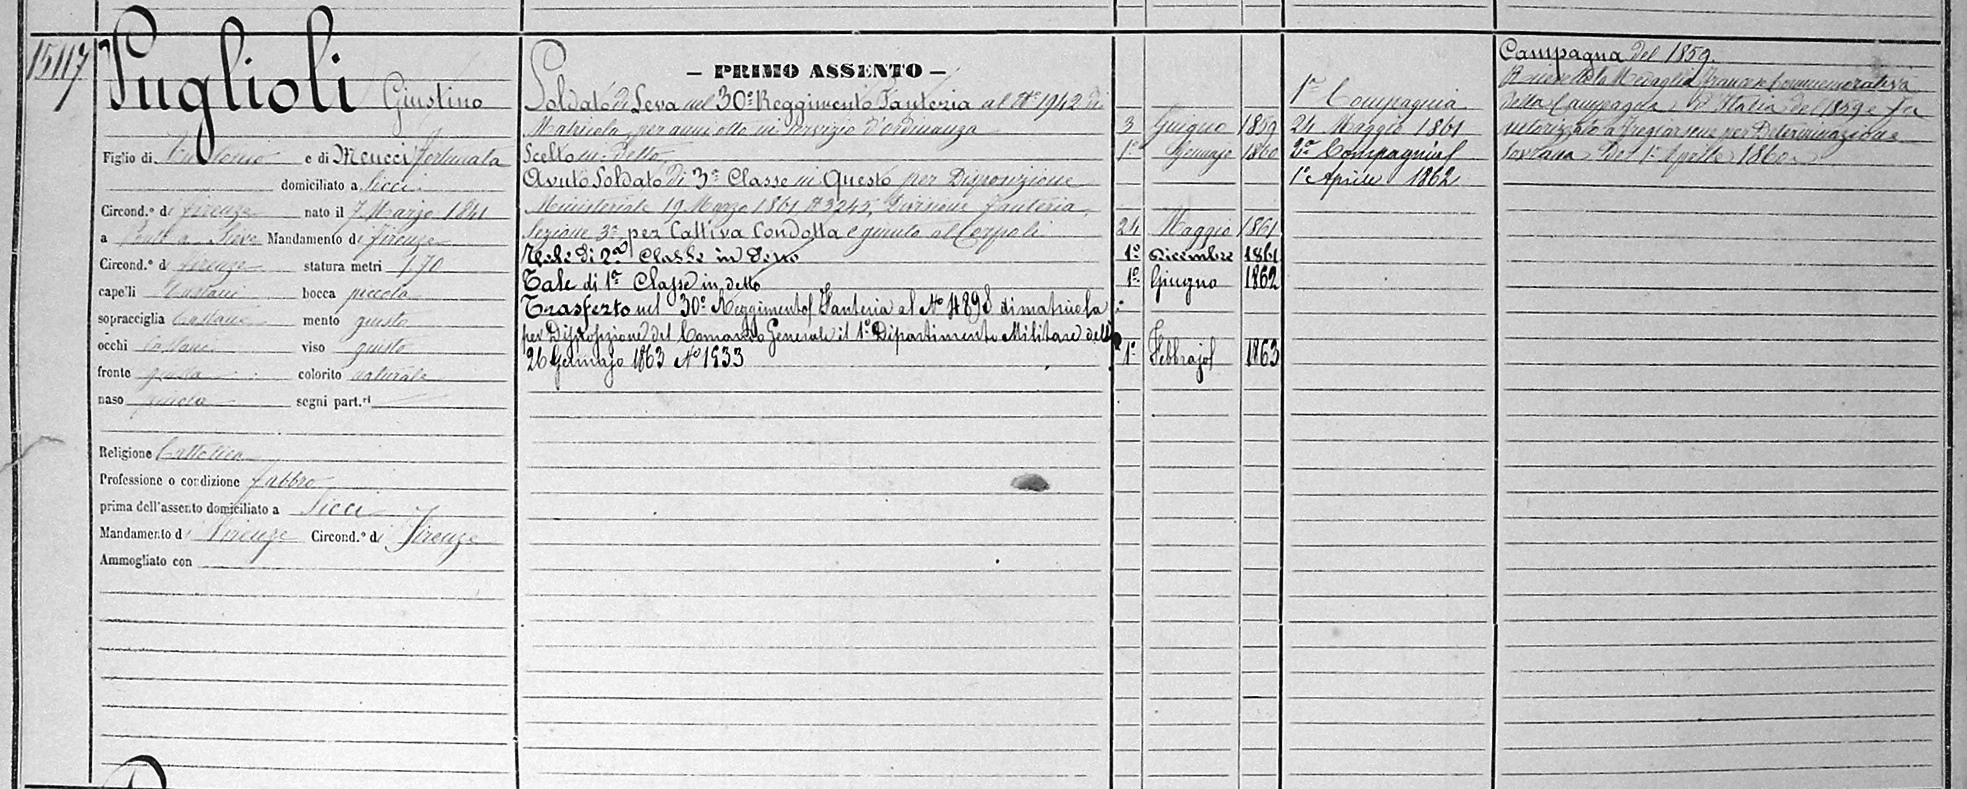 15117
Puglioli Giustino
Figlio di e di Meucci Fortunata
domiciliato a Sieci
Circond.º di Firenze nato il 7 Marzo 1841
a Ponte a Sieve Mandamento di Firenze
Circond.º di Firenze statura metri 1,70
capelli Castani bocca piccola
sopracciglia Castani mento giusto
occhi Castani viso giusto
fronte giusta colorito naturale
naso segni part.ri
Religione Cattolica
Professione o condizione fabbro
prima dell'assento domiciliato a Sieci
Mandamento di Firenze Circond.º di Firenze
Ammogliato con
— PRIMO ASSENTO —
Soldato di Leva nel 30º Reggimento Fanteria al Nº 1942 di
Matricola, per anni otto in servizio d'ordinanza 3 Giugno 1859
Scelto in detto 1º Gennajo 1860
Avuto Soldato di 3ª Classe in Questo per Disposizione
Ministeriale 19 Marzo 1861 Nº 3245, Divisione Fanteria,
Sezione 3ª per Cattiva Condotta e giunto al Corpo li 24 Maggio 1861
di 2ª Classe in Detto 1º Dicembre 1861
Tale di 1ª Classe in detto 1º Giugno 1862
Trasferto nel 30º Reggimento Fanteria al Nº 4898 di matricola
per Disposizione del Comando Generale il 1º Dipartimento Militare delli
26 Gennajo 1863 Nº 1533 1º Febbrajo 1863
1ª Compagnia
24 Maggio 1861
2ª Compagnia
1º Aprile 1862
Campagna del 1859.
Ricevette la Medaglia Francese Commemorativa
della Campagna d'Italia del 1859 e fu
autorizzato a fregiarsene per Determinazione
Sovrana Del 1º Aprile 1860